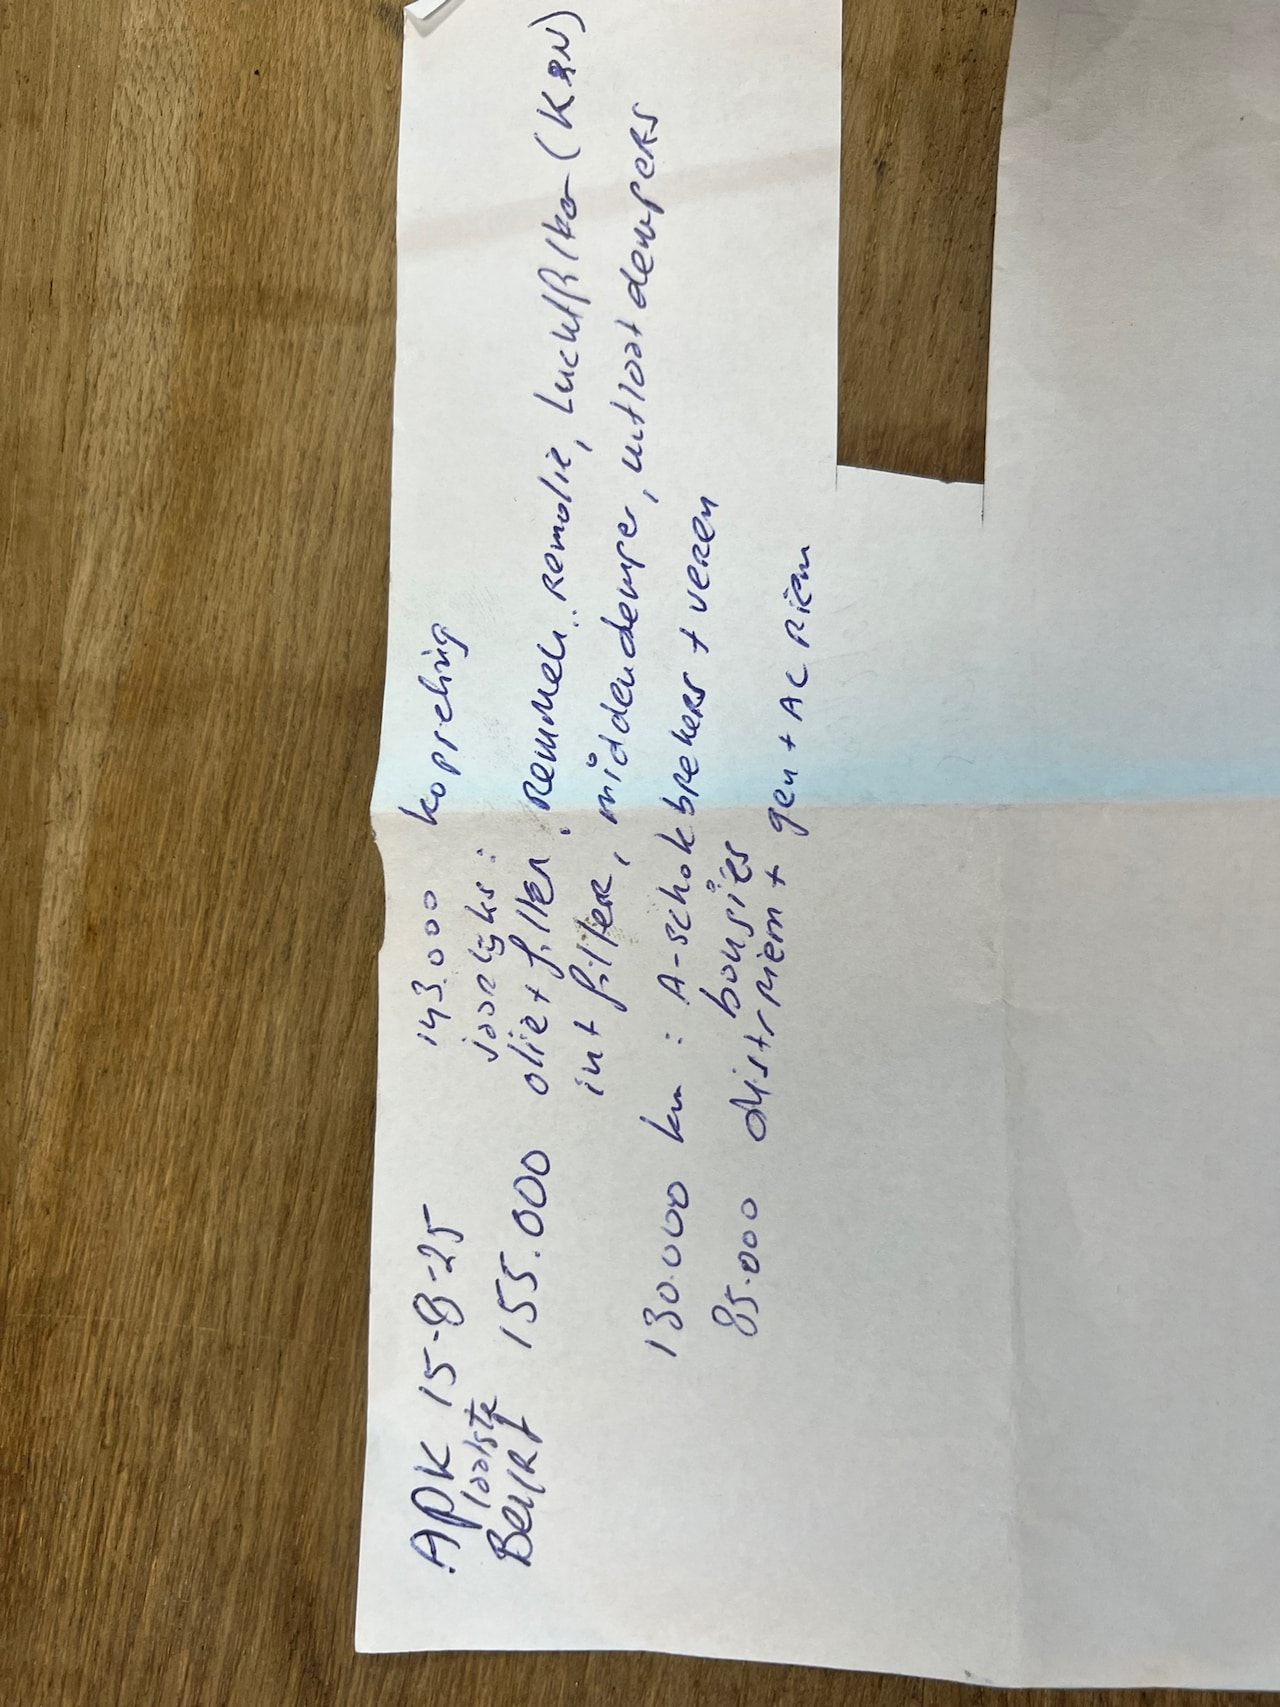 APK 15-8-25 143.000 koppeling
laatste jaarlijks:
Beurt 155.000 olie + filter. Remmen.. Remolie, Luchtfilter (K&N)
int filter, middendemper, uitlaat dempers
130.000 km: A-schokbrekers + veren
bougies
85.000 distr riem + gen + AC Riem